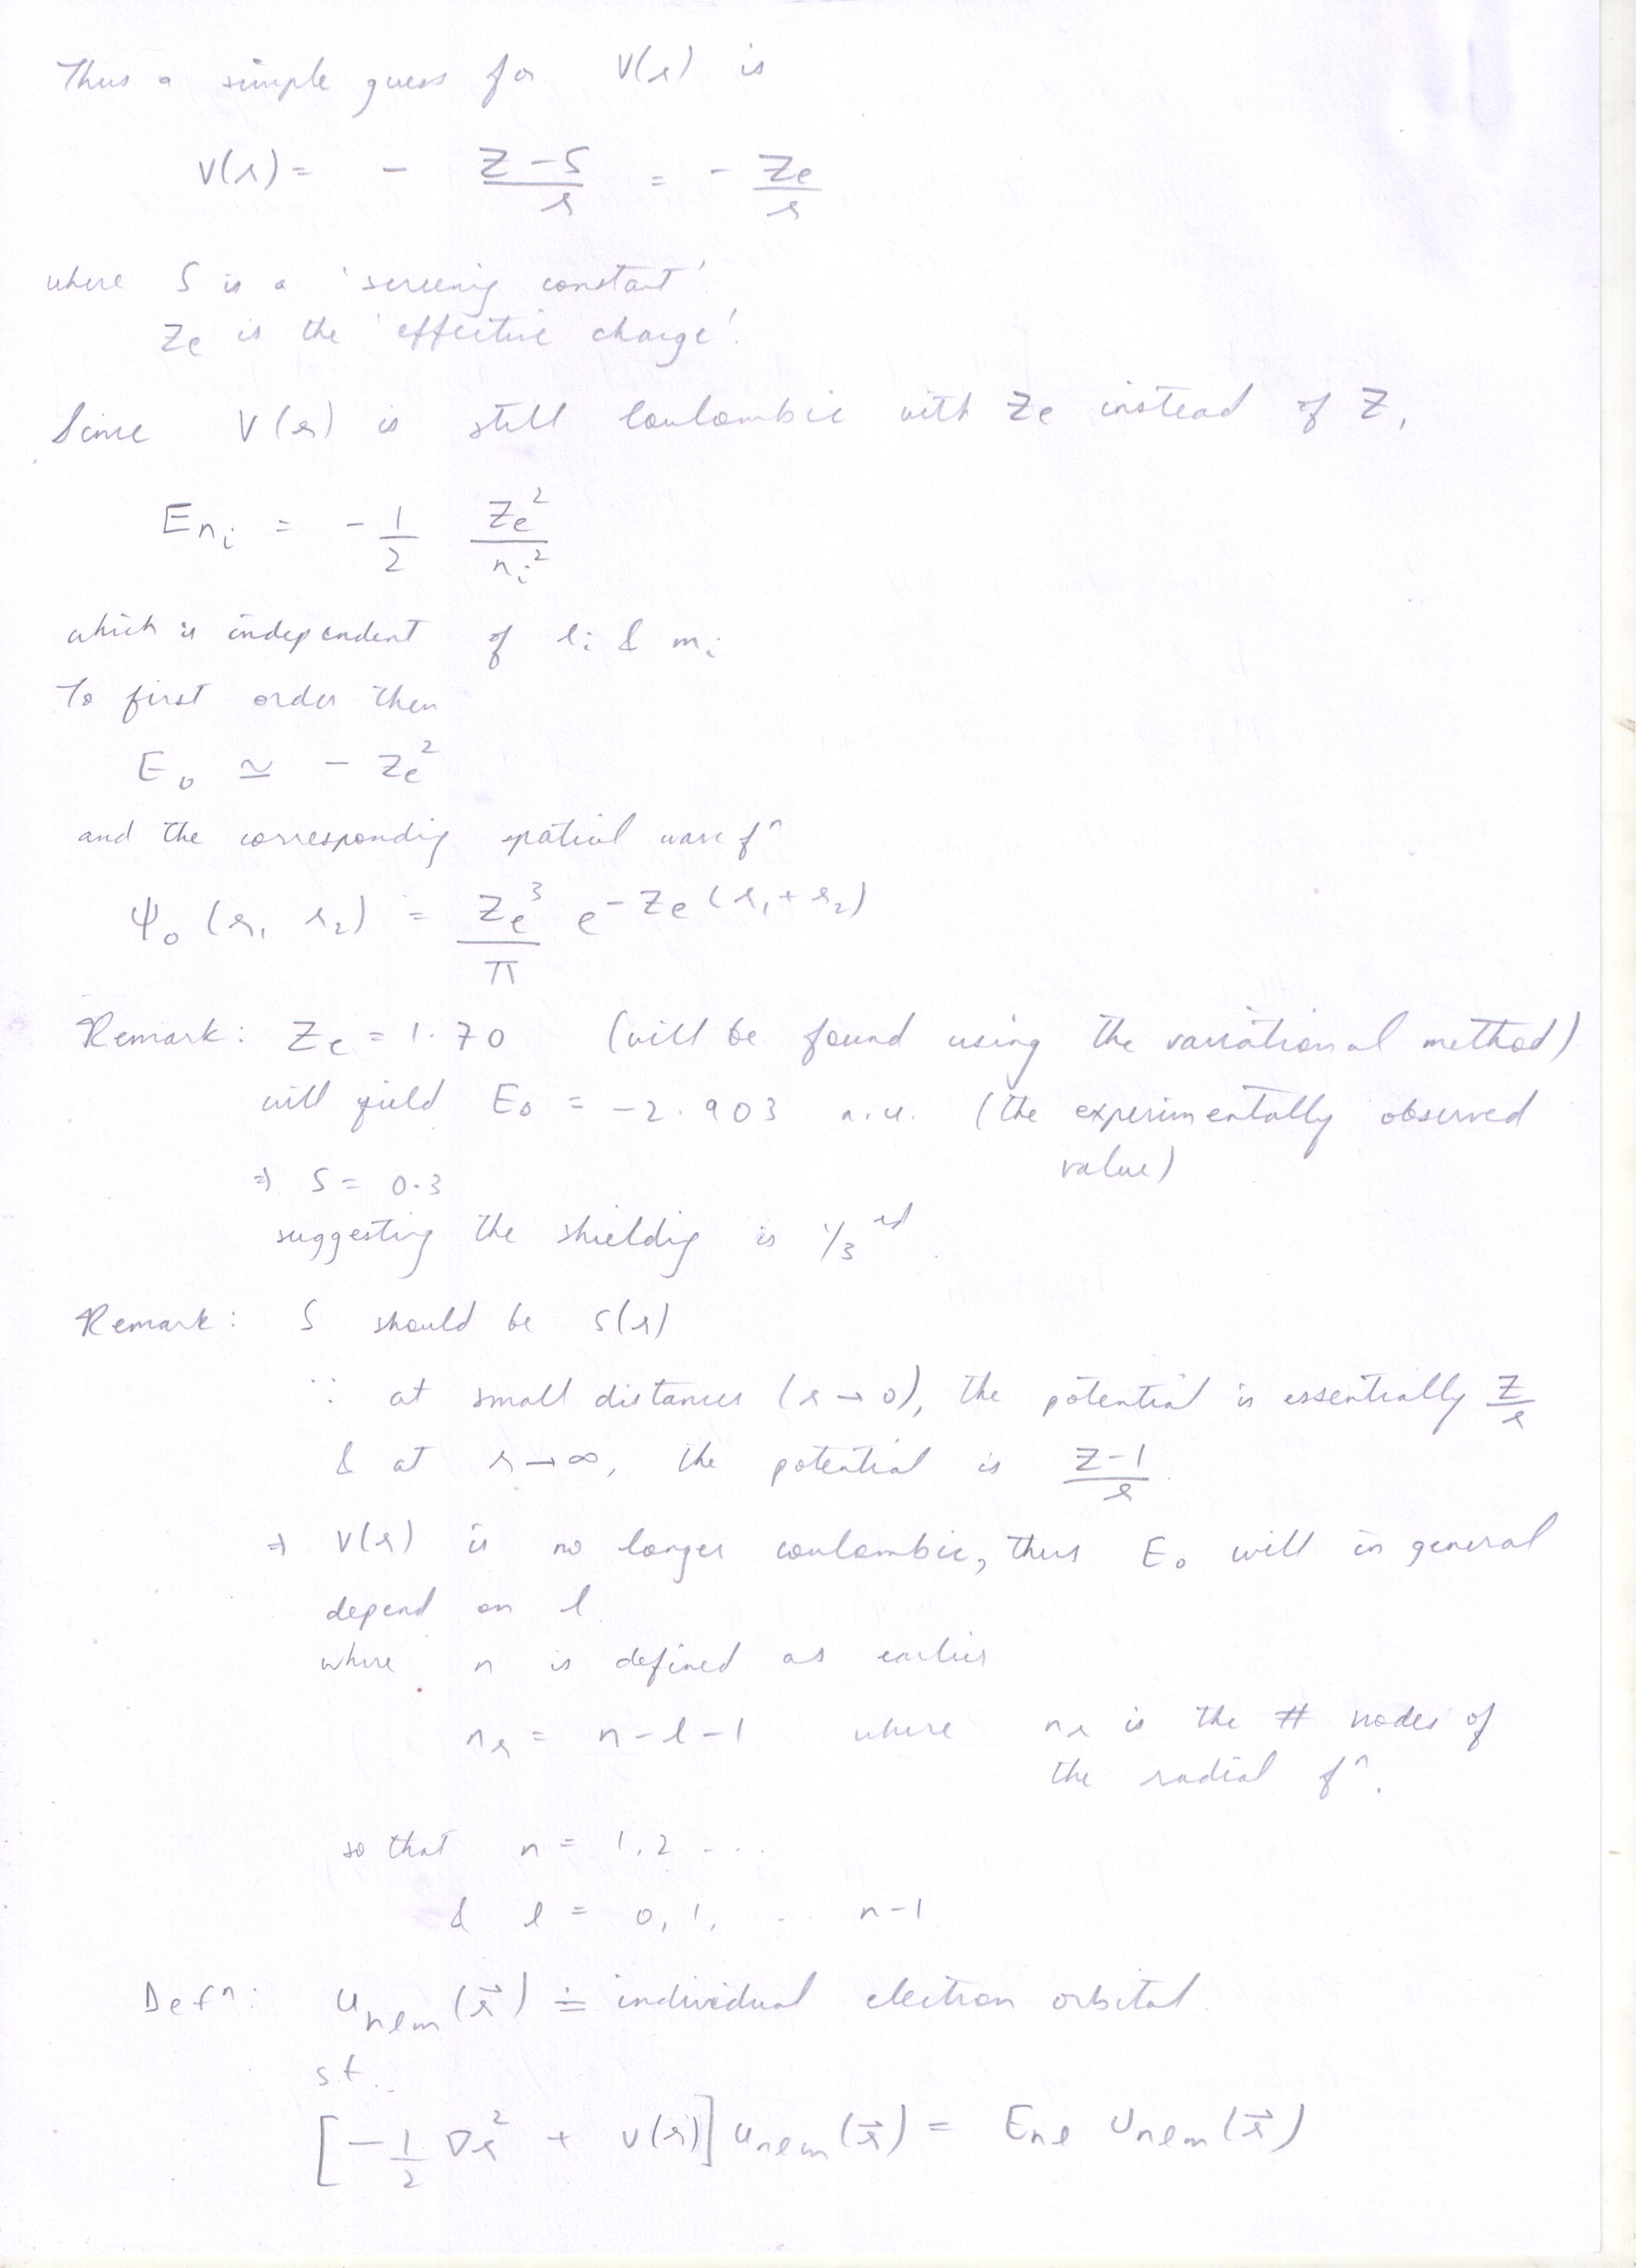 Thus a simple guess for V(r) is
V(r) = - (Z-S)/r = - Ze/r
where S is a 'screening constant'
Ze is the 'effective charge'.
Since V(r) is still Coulombic with Ze instead of Z,
E_{n_i} = - 1/2 Ze²/n_i²
which is independent of l_i & m_i
To first order then
E_0 ≃ - Ze²
and the corresponding spatial wave fⁿ
ψ_0 (r_1 r_2) = Ze³/π e^{-Ze(r_1+r_2)}
Remark: Ze = 1.70 (will be found using the variational method)
will yield E_0 = -2.903 a.u. (the experimentally observed
value)
⇒ S = 0.3
suggesting the shieldig is 1/3 rd.
Remark: S should be S(r)
∵ at small distances (r→0), the potential is essentially Z/r
& at r→∞, the potential is (Z-1)/r.
⇒ V(r) is no longer coulombic, thus E_0 will in general
depend on l
where n is defined as earlier
n_r = n-l-1 where n_r is the # nodes of
the radial fⁿ.
so that n = 1,2 ...
& l = 0,1, ... n-1
Defⁿ: u_{nlm}(r⃗) ≐ individual electron orbital.
s.t.
[-1/2 ∇_r² + V(r)] u_{nlm}(r⃗) = E_{nl} u_{nlm}(r⃗)